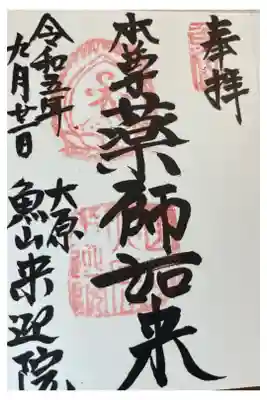 奉拝
本尊薬師如来
令和五年
九月廿一日
大原
魚山来迎院